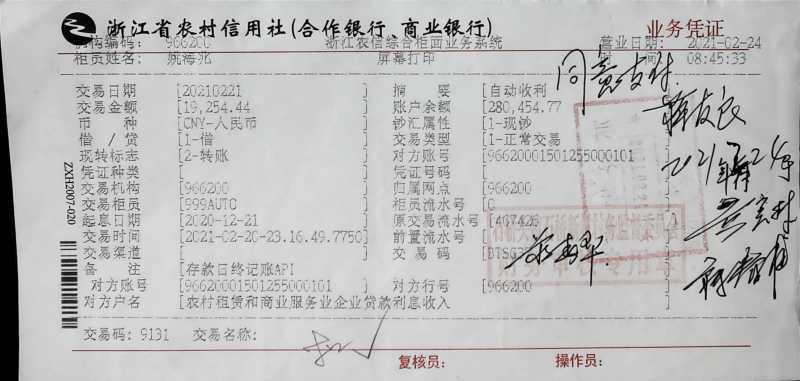 浙江省农村信用社(合作银行、商业银行) 业务凭证
机构编码: 966200 浙江农信综合柜面业务系统 营业日期: 2021-02-24
柜员姓名: 姚海兆 屏幕打印 时间: 08:45:33
同意支付.
交易日期 [20210221 ] 摘 要 [自动收利
交易金额 [19,254.44 ] 账户余额 [280,454.77
币 种 [CNY-人民币 ] 钞汇属性 [1-现钞
借 / 贷 [1-借 ] 交易类型 [1-正常交易
现转标志 [2-转账 ] 对方账号 [966200015012550001​01
凭证种类 [ ] 凭证号码 [
交易机构 [966200 ] 归属网点 [966200
交易柜员 [999AUTO ] 柜员流水号 [0
起息日期 [2020-12-21 ] 原交易流水号 [467426
交易时间 [2021-02-20-23.16.49.7750] 前置流水号 [
交易渠道 [ ] 交 易 码 [BTSG
备 注 [存款日终记账API
对方账号 [96620001501255000101 ] 对方行号 [966200 ]
对方户名 [农村租赁和商业服务业企业贷款利息收入 ]
交易码: 9131 交易名称:
复核员: 操作员:
ZXH2007-020